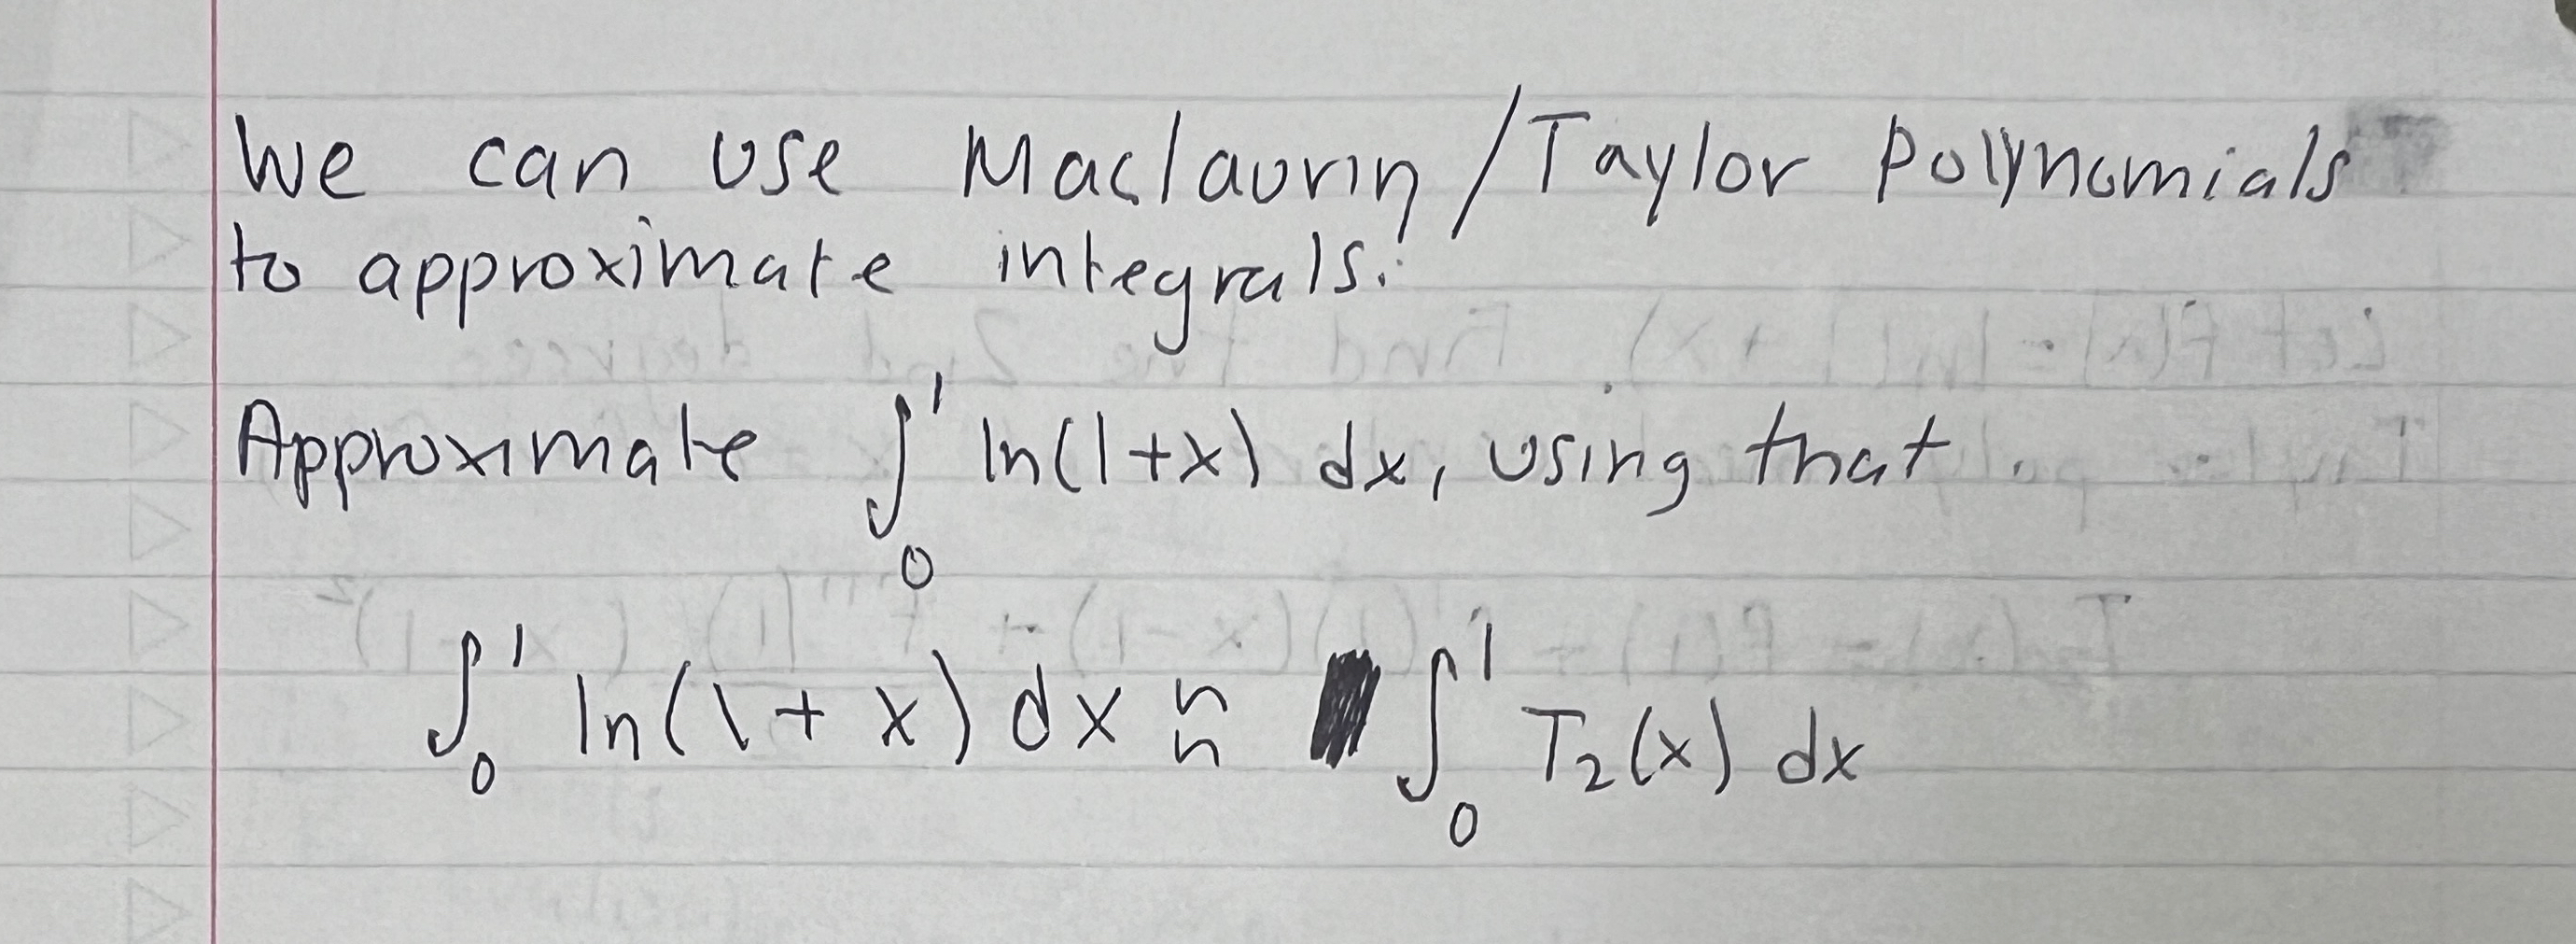 We can use Maclaurin/Taylor Polynomials
to approximate integrals.
Approximate ∫₀¹ ln(1+x) dx, using that
∫₀¹ ln(1+x) dx ≈ ∫₀¹ T₂(x) dx